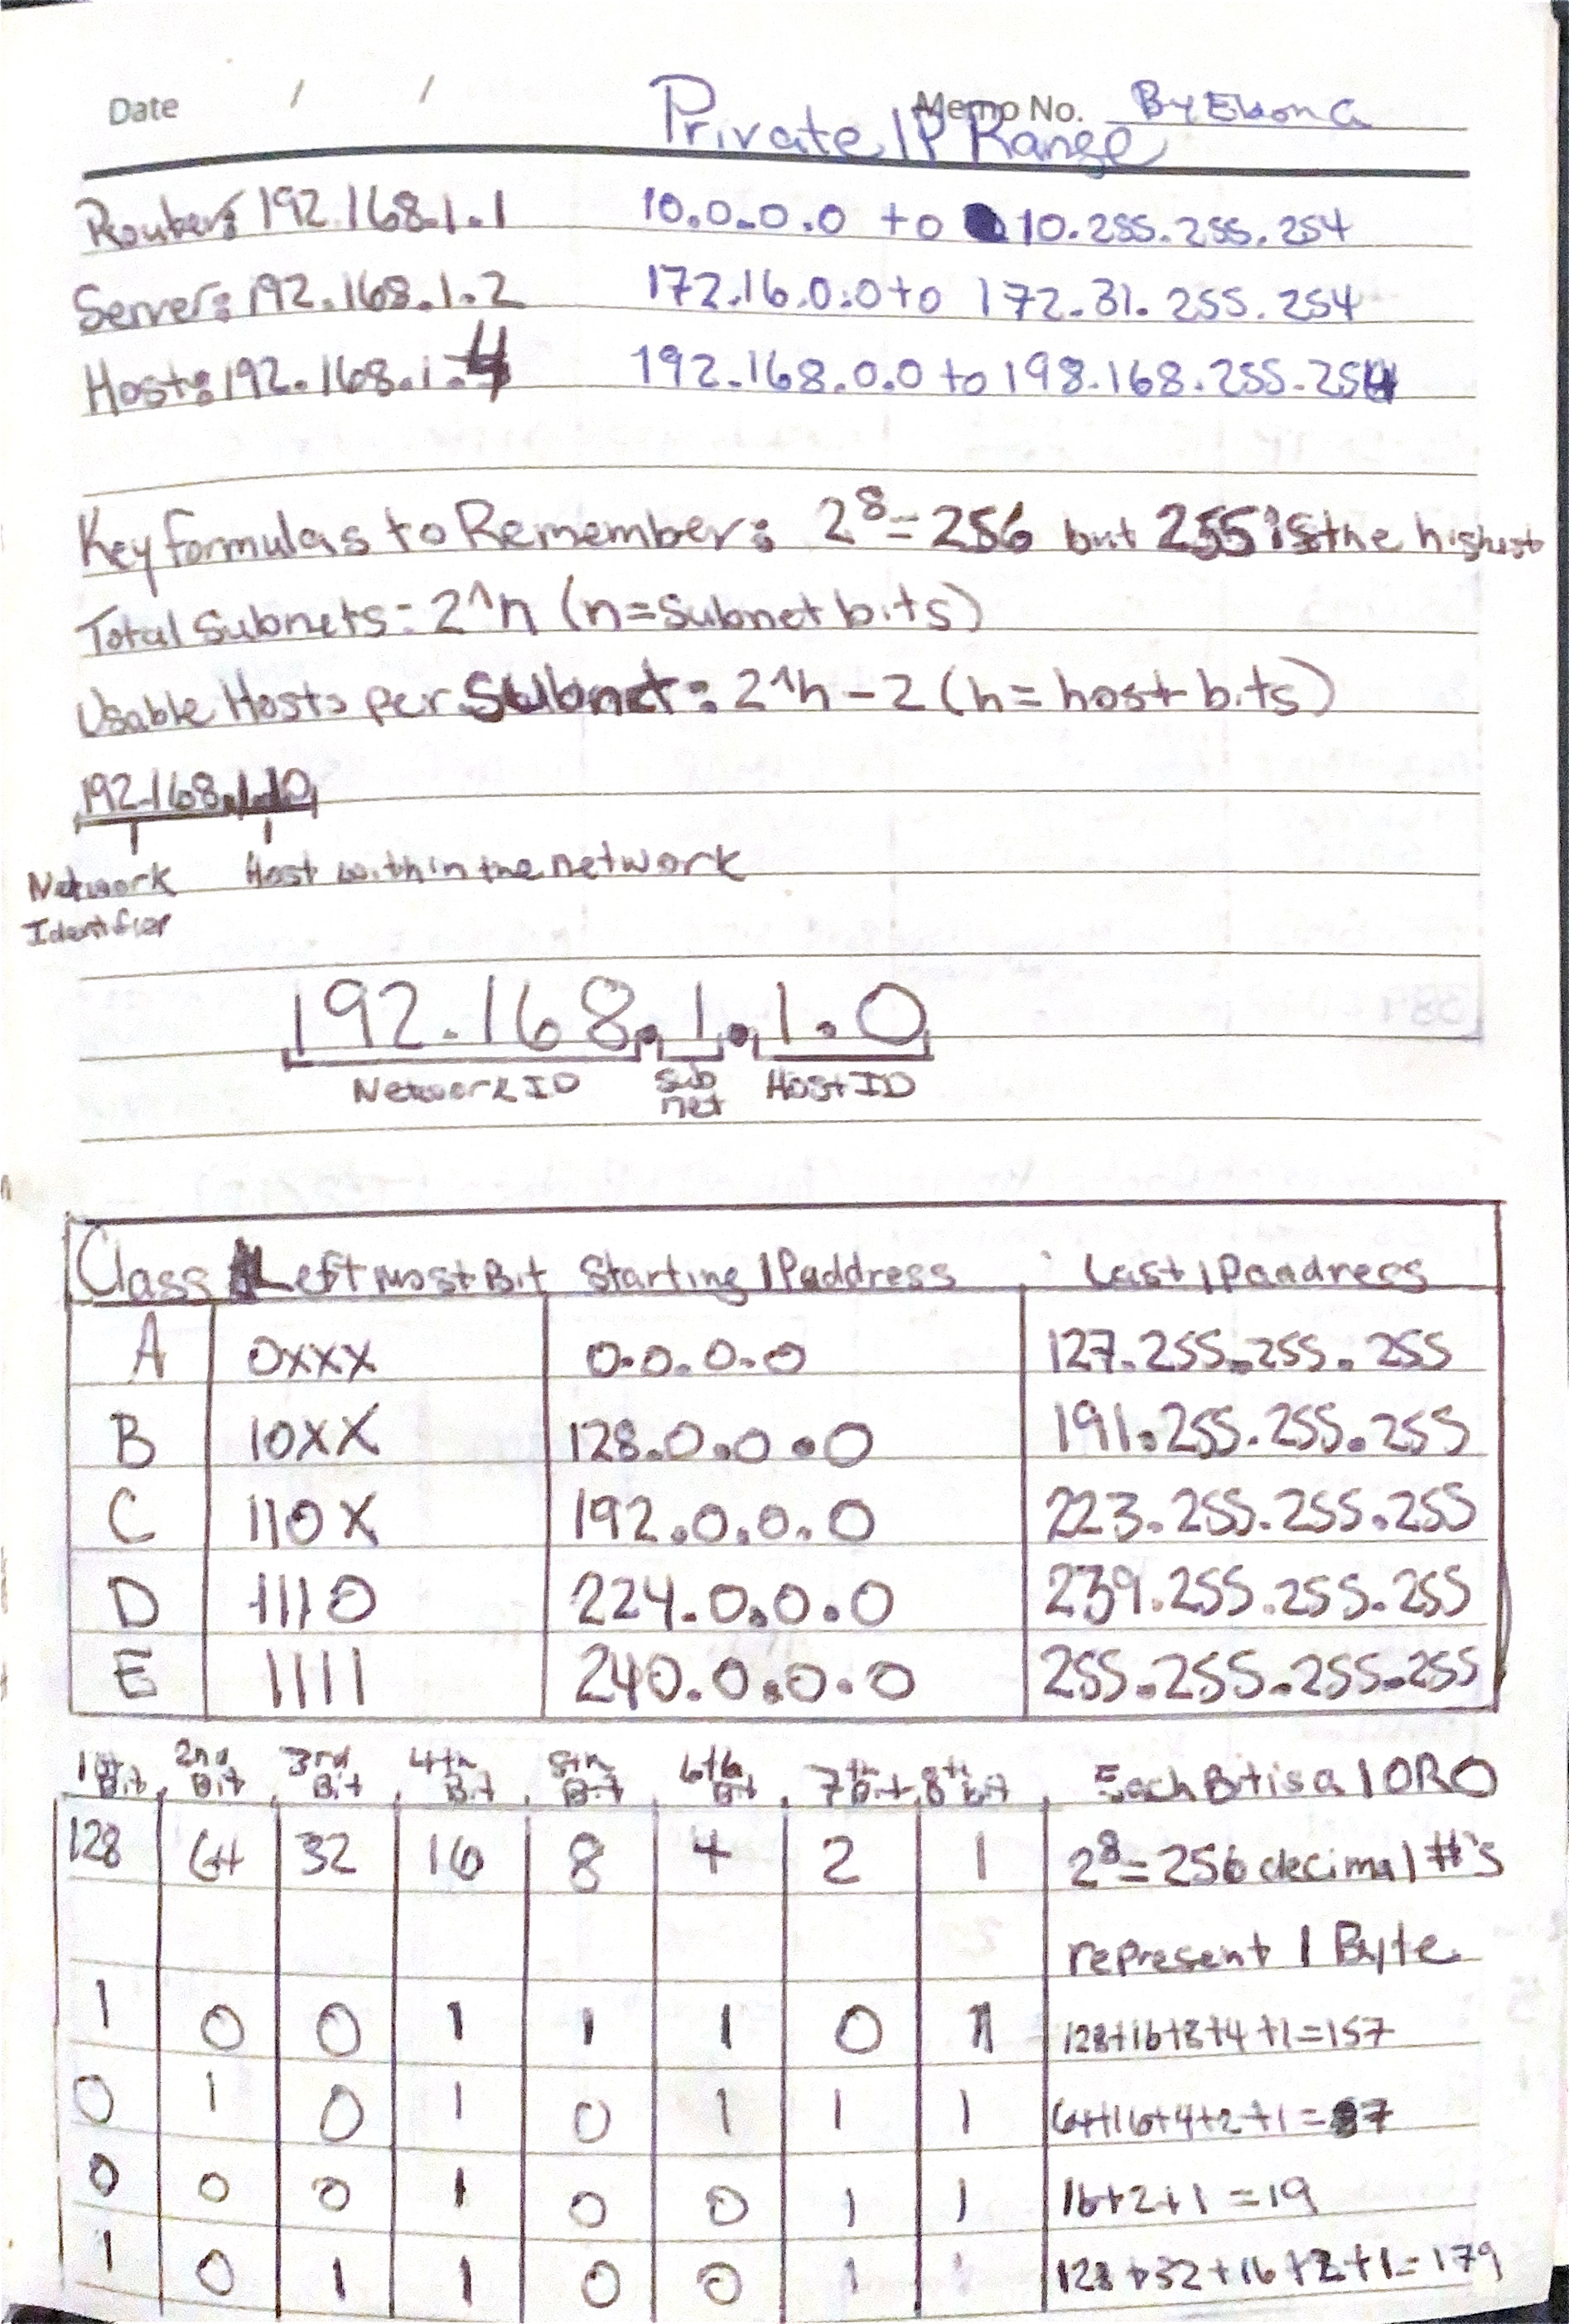 Date / / Memo No. By Ebon G
Private IP Range
Router: 192.168.1.1 10.0.0.0 to 10.255.255.254
Server: 192.168.1.2 172.16.0.0 to 172.31.255.254
Host: 192.168.1.4 192.168.0.0 to 198.168.255.254
Key formulas to Remember: 2^8=256 but 255 is the highest
Total Subnets: 2^n (n=subnet bits)
Usable Hosts per Subnet: 2^h-2 (h=host bits)
192.168.1.10
Network Host within the network
Identifier
192.168.1.1.0
Network ID Sub net Host ID
Class Left Most Bit Starting IP address Last IP address
A 0xxx 0.0.0.0 127.255.255.255
B 10xx 128.0.0.0 191.255.255.255
C 110x 192.0.0.0 223.255.255.255
D 1110 224.0.0.0 239.255.255.255
E 1111 240.0.0.0 255.255.255.255
1st Bit 2nd Bit 3rd Bit 4th Bit 5th Bit 6th Bit 7th Bit 8th bit Each Bit is a 1 OR 0
128 64 32 16 8 4 2 1 2^8=256 decimal #'s
represent 1 Byte
1 0 0 1 1 1 0 1 128+16+8+4+1=157
0 1 0 1 0 1 1 1 64+16+4+2+1=87
0 0 0 1 0 0 1 1 16+2+1=19
1 0 1 1 0 0 1 1 128+32+16+2+1=179